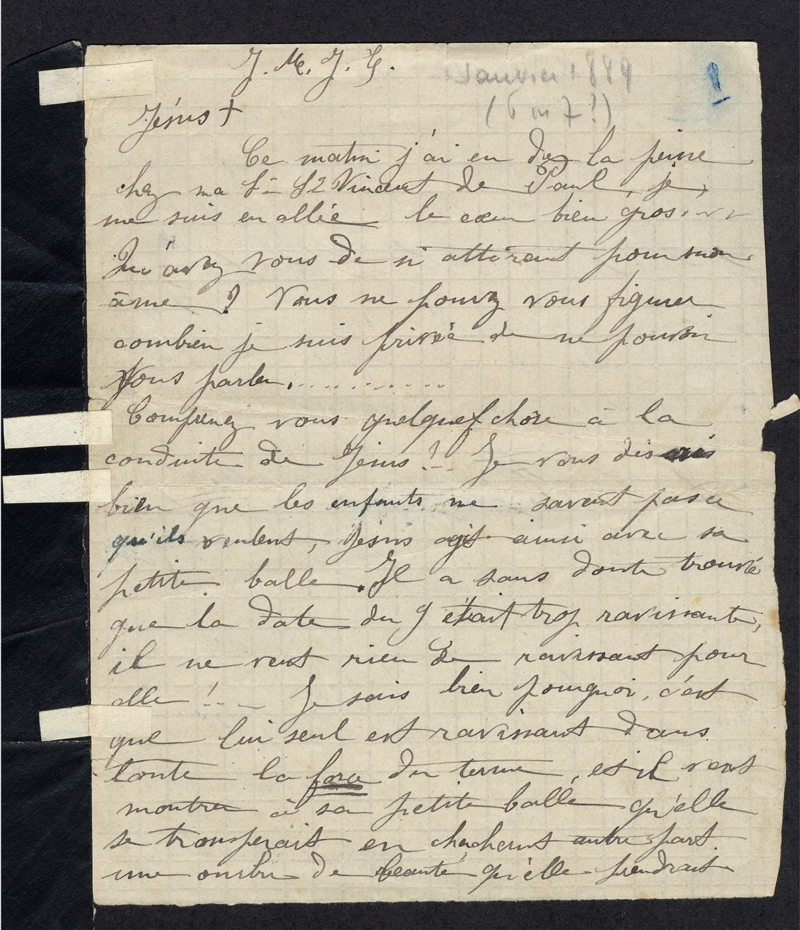 J. M. J. T.
Janvier 1889
(6 ou 7?)
Jésus +
Ce matin j'ai eu de la peine
chez ma Sr St Vincent de Paul, je
me suis en allée le cœur bien gros....
Qu'avez vous de si attirant pour mon
âme ? Vous ne pouvez vous figurer
combien je suis privée de ne pouvoir
Vous parler............
Comprenez vous quelque chose à la
conduite de Jésus !... Je vous disais
bien que les enfants ne savent pas ce
qu'ils veulent, Jésus agit ainsi avec sa
petite balle. Il a sans doute trouvé
que la date du 9 était trop ravissante,
il ne veut rien de ravissant pour
elle !... Je sais bien pourquoi, c'est
que lui seul est ravissant dans
toute la force du terme, et il veut
montrer à sa petite balle qu'elle
se tromperait en cherchant autre part
une ombre de beauté qu'elle prendrait